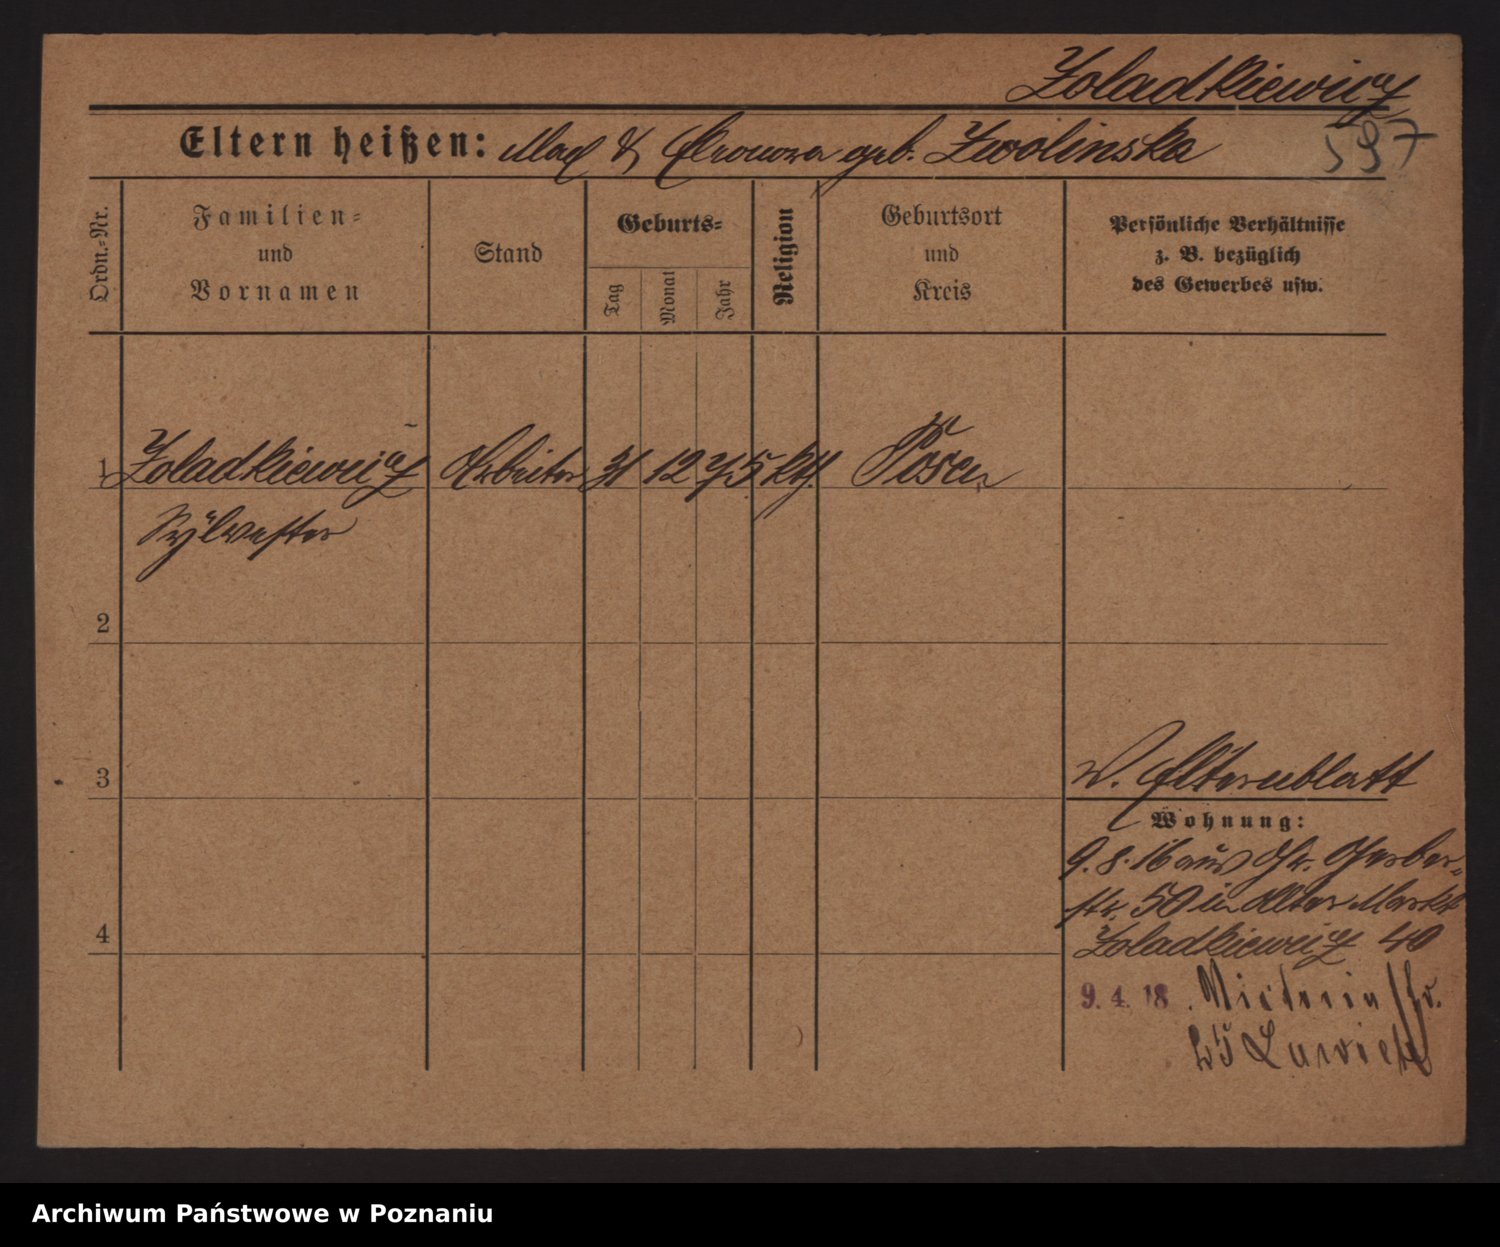 Zoladkiewicz
Eltern heißen: geb. Zwolinska
597
Ordn.-Nr.
Familien-
und
Vornamen
Stand
Geburts-
Tag
Monat
Jahr
Religion
Geburtsort
und
Kreis
Persönliche Verhältnisse
z. B. bezüglich
des Gewerbes usw.
1 Zoladkiewicz Arbeiter 31 12 75 kth. Posen
Sylvester
2
3
4
W. Elternblatt
Wohnung:
9.8.16 aus Gr. Gerber-
str. 50 in Alter Markt
Zoladkiewicz 40
9. 4. 18